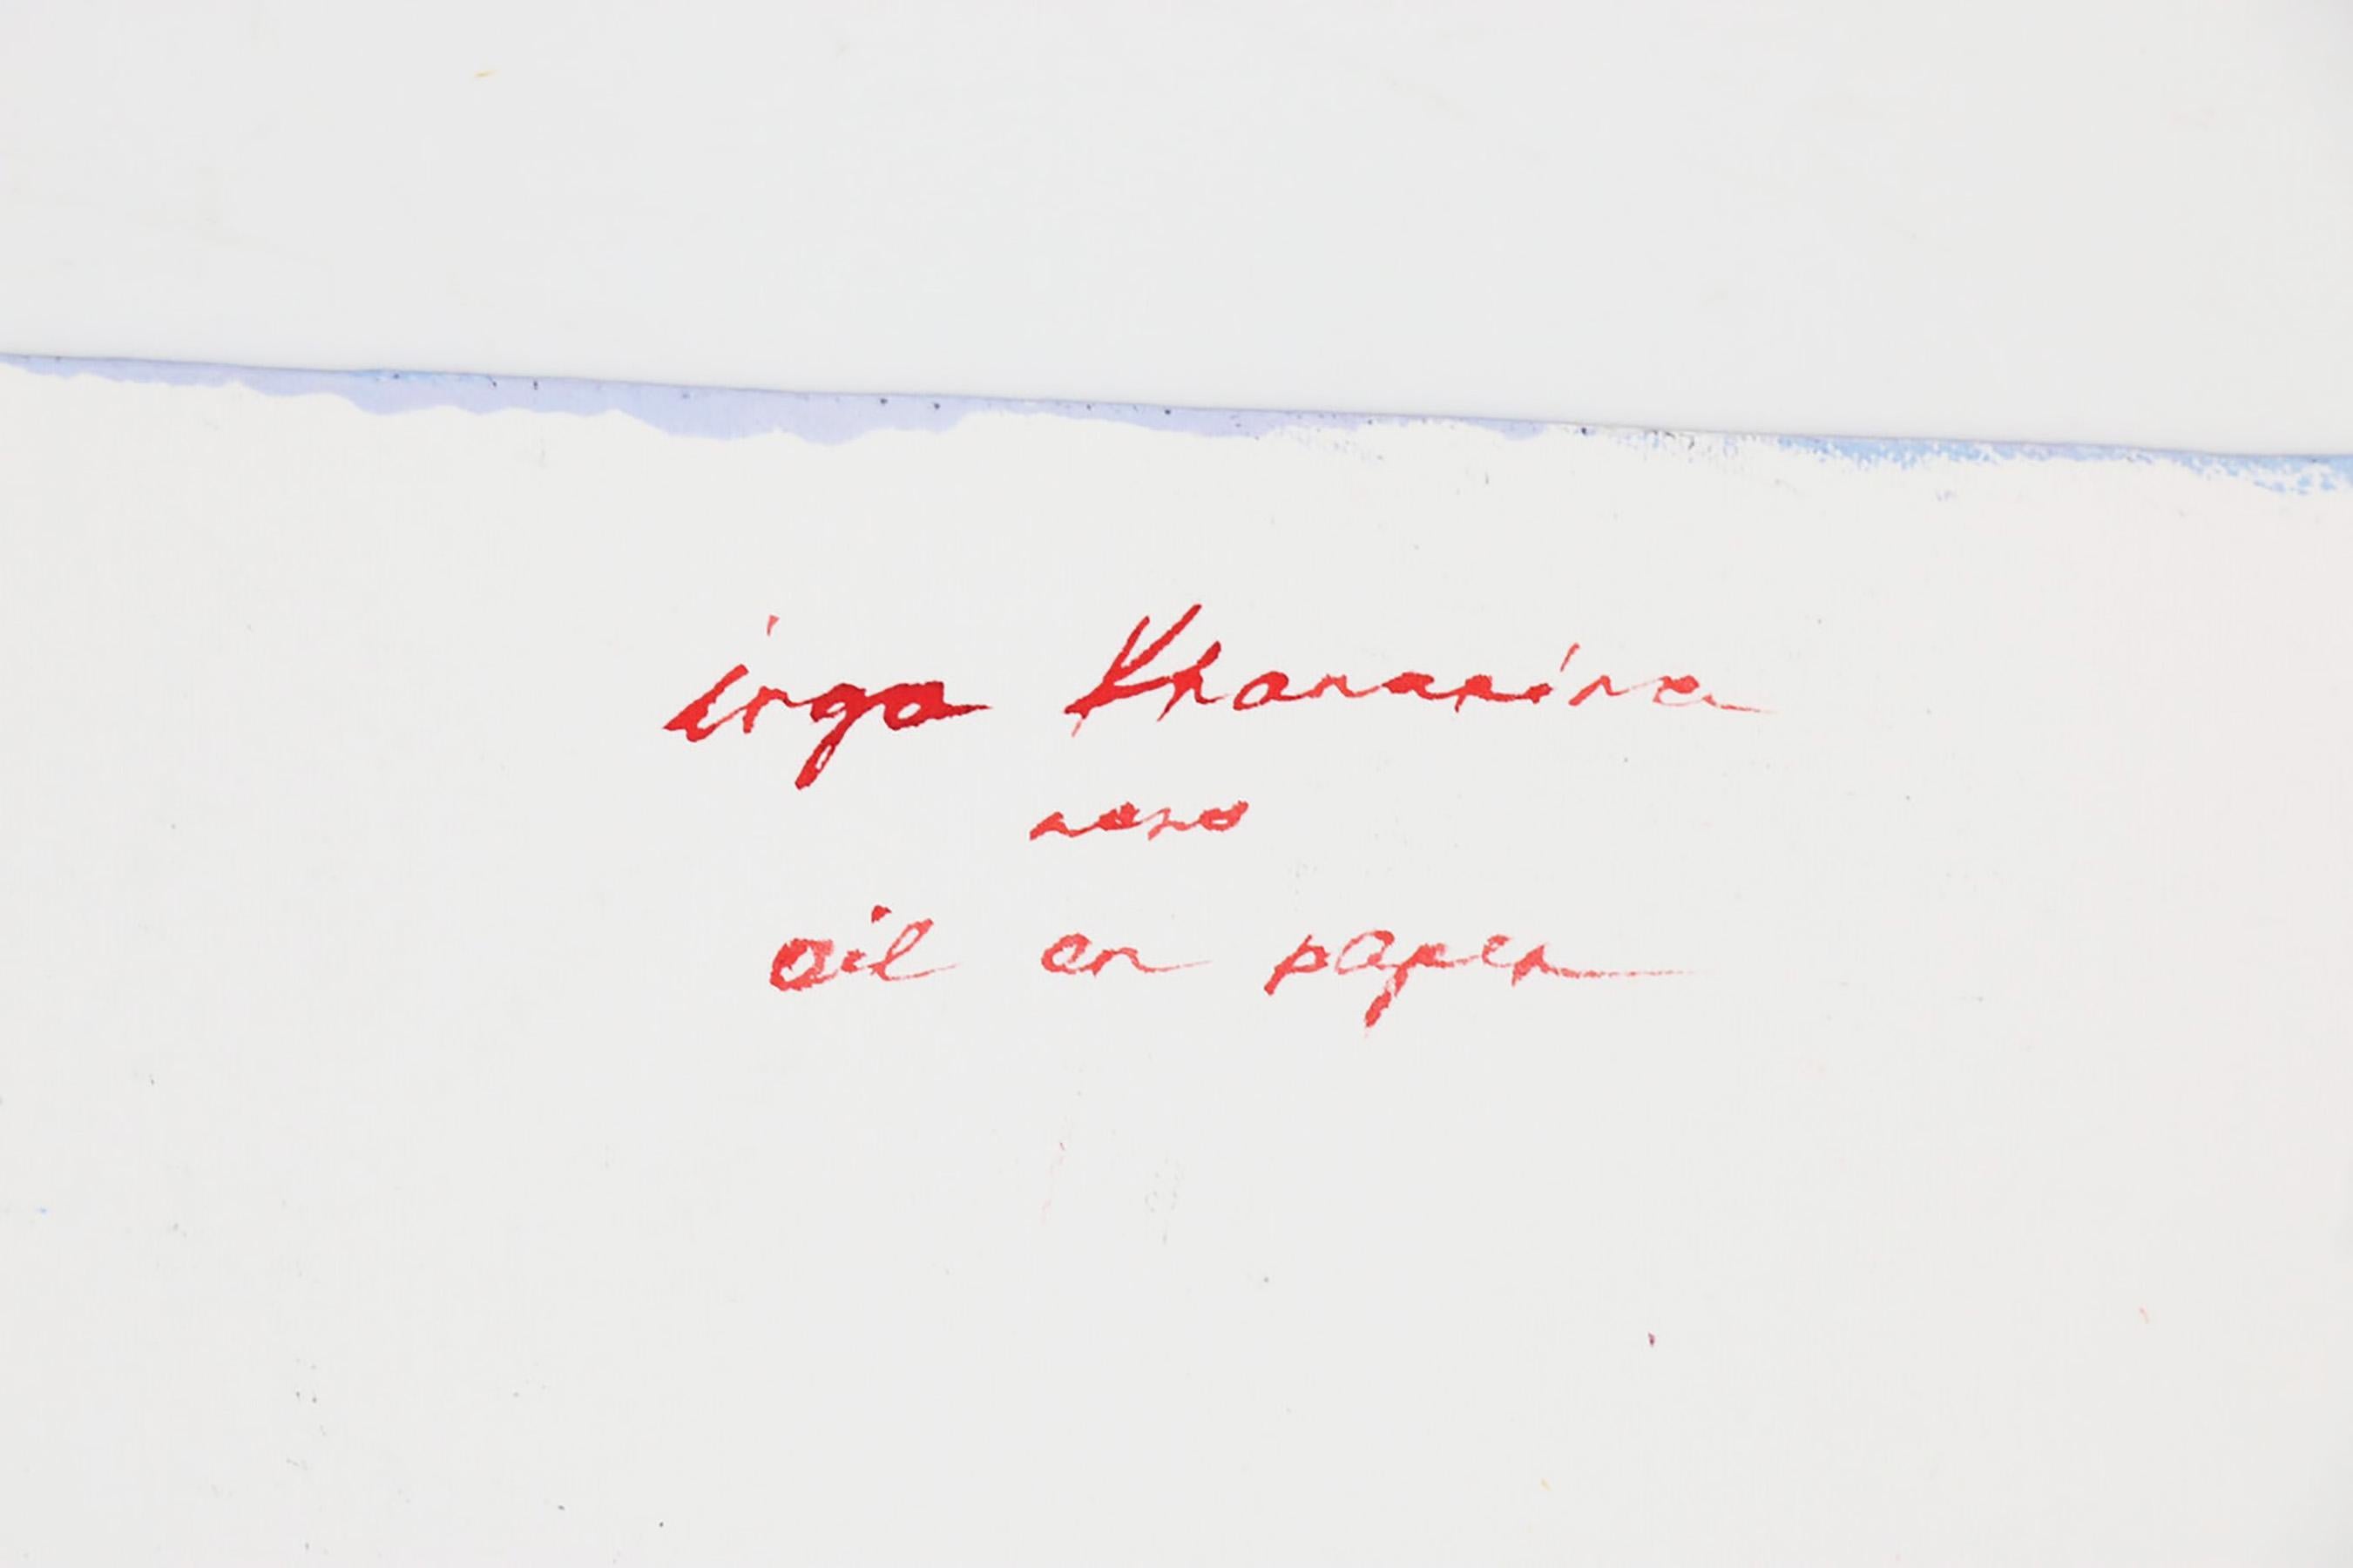 inga Khanarina
2020
oil on paper